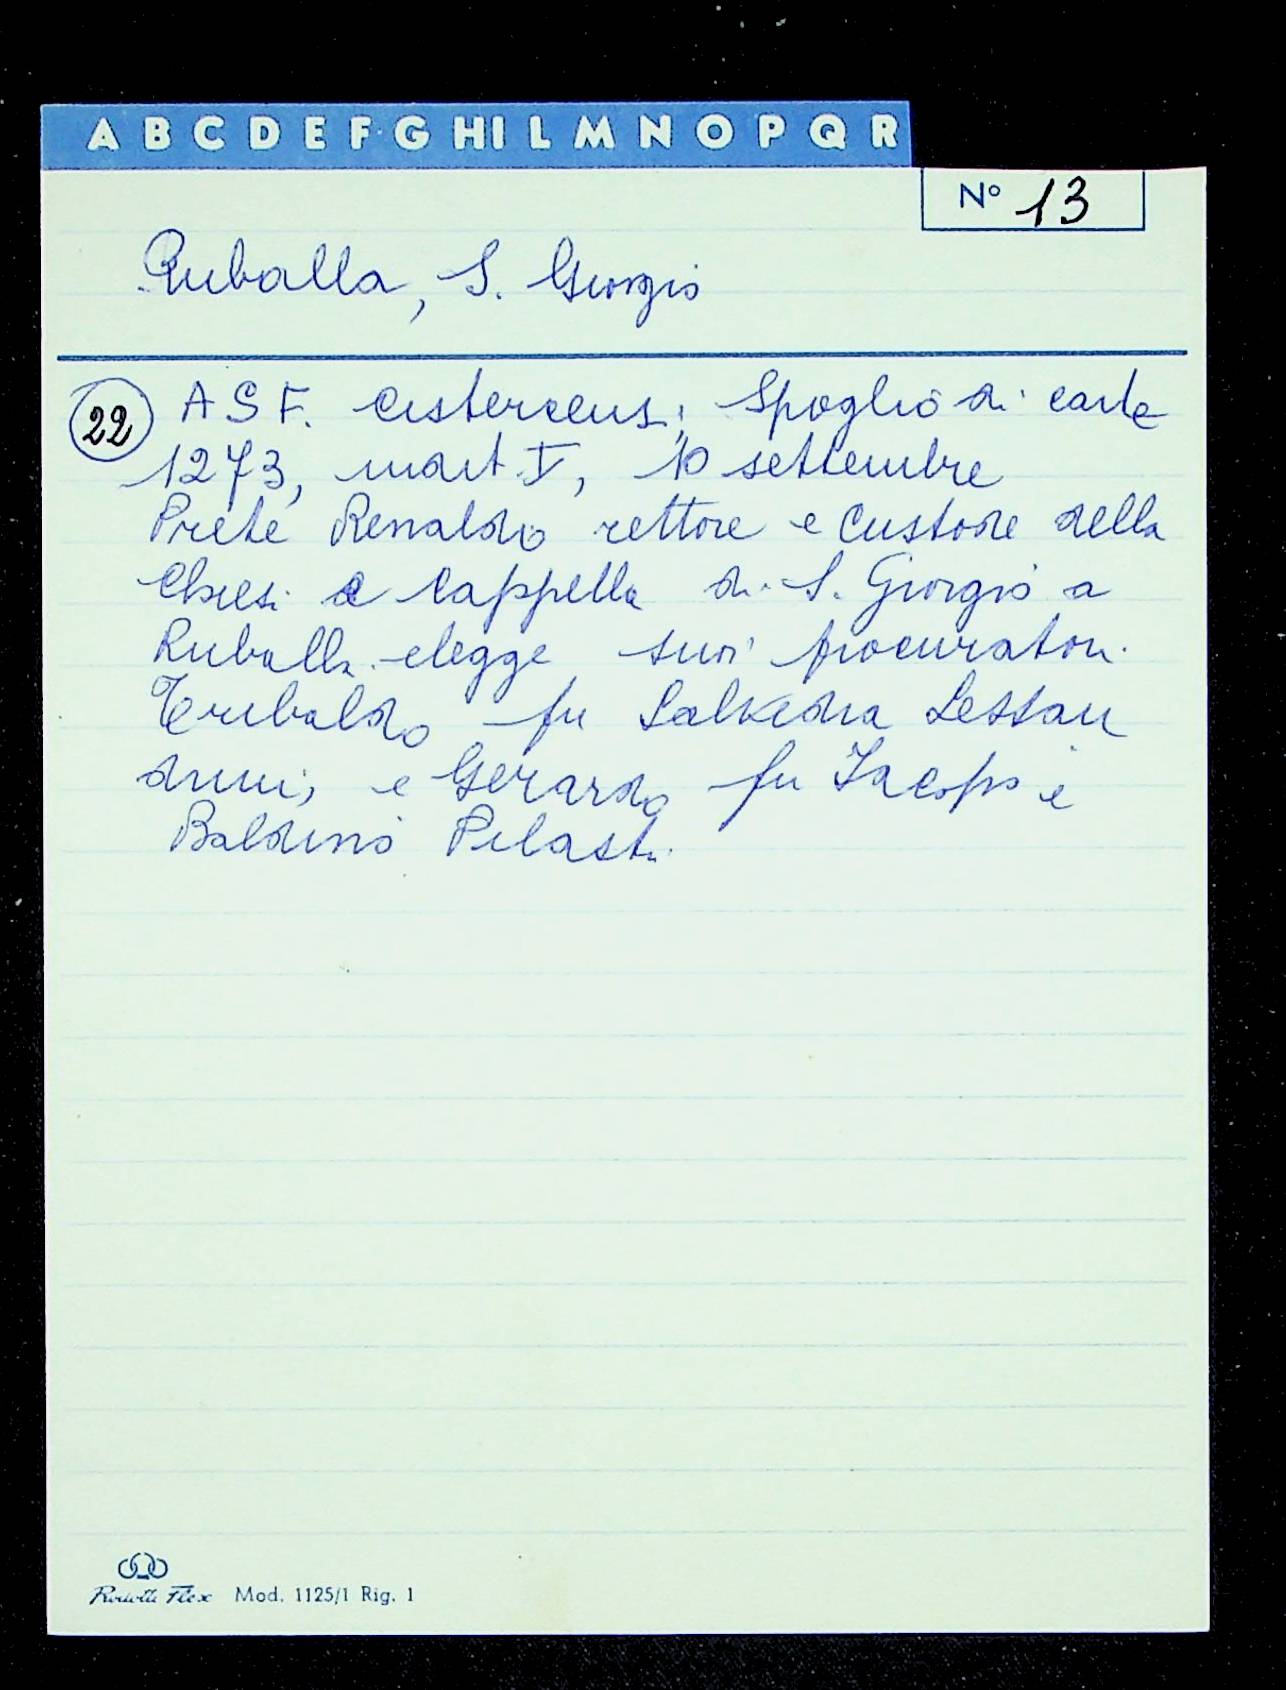 A B C D E F G HI L M N O P Q R
N° 13
Ruballa, S. Giorgio
22 A S F. Cistercens; Spoglio di carte
1273, indit. I, 10 settembre
Prete Renaldo rettore e Custode della
Chiesi e Cappella di S. Giorgio a
Ruballa elegge suoi procuratori
Teribaldo fu
e Gerardo fu Jacopo e
Baldino Pilastri
Mod. 1125/1 Rig. 1